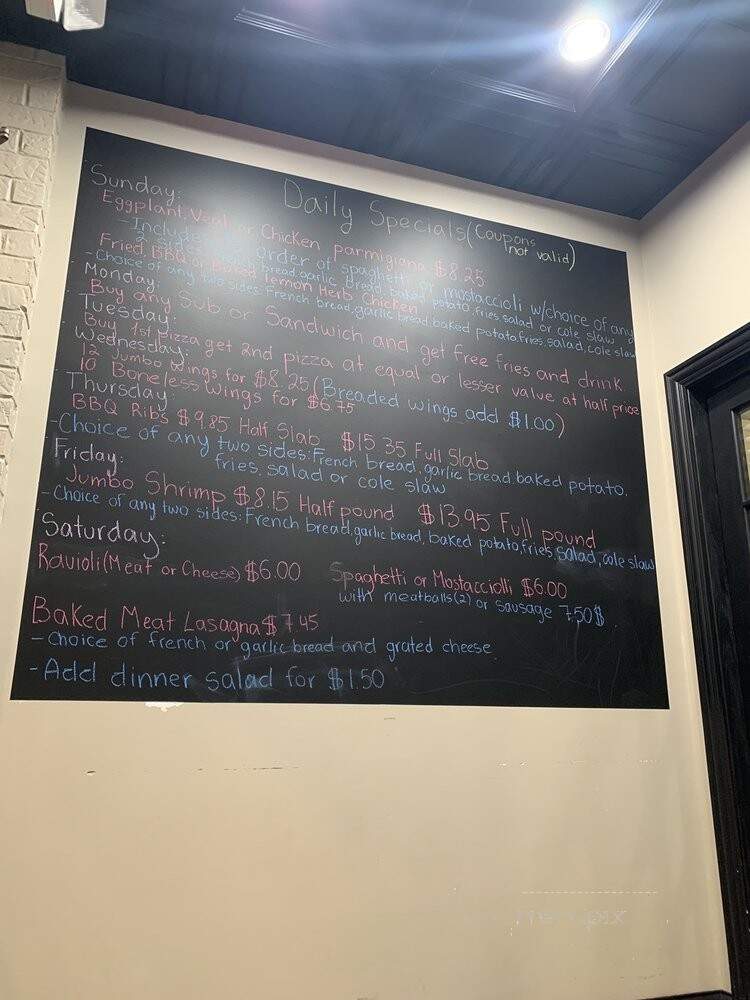 Daily Specials (Coupons not valid)
Sunday:
Eggplant, Veal or Chicken parmigiana $8.25
- Includes order of spaghetti or mostaccioli w/choice of any
2 sides: French bread, garlic bread, baked potato, fries, salad or cole slaw
Fried, BBQ or baked lemon Herb Chicken
- Choice of any two sides: French bread, garlic bread, baked potato, fries, salad, cole slaw
Monday:
Buy any Sub or Sandwich and get free fries and drink
Tuesday:
Buy 1st pizza get 2nd pizza at equal or lesser value at half price
Wednesday:
12 Jumbo Wings for $8.25 (Breaded wings add $1.00)
10 Boneless Wings for $6.75
Thursday:
BBQ Ribs $9.85 Half Slab $15.35 Full Slab
- Choice of any two sides: French bread, garlic bread, baked potato,
fries, salad or cole slaw
Friday:
Jumbo Shrimp $8.15 Half pound $13.95 Full pound
- Choice of any two sides: French bread, garlic bread, baked potato, fries, salad, cole slaw
Saturday:
Ravioli (Meat or Cheese) $6.00 Spaghetti or Mostacciolli $6.00
with meatballs (2) or sausage 7.50$
Baked Meat Lasagna $7.45
- Choice of french or garlic bread and grated cheese
- Add dinner salad for $1.50